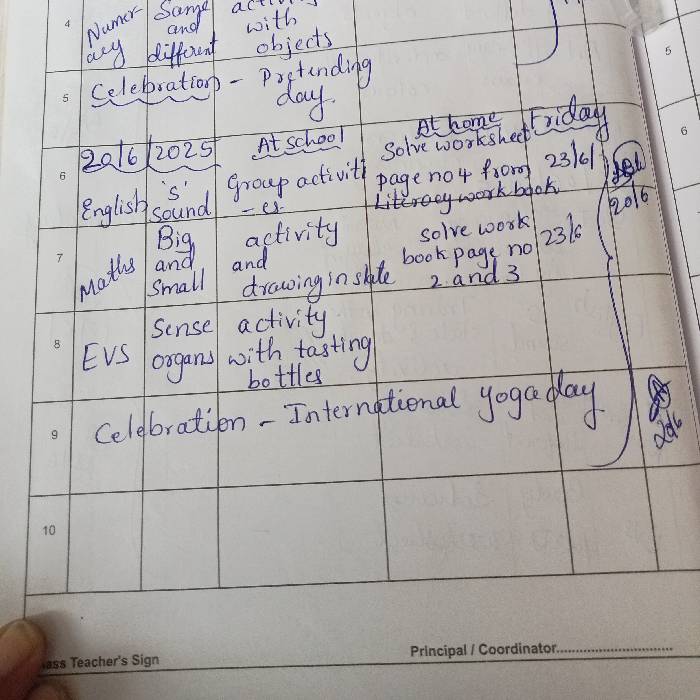 4 Numer Same activi
acy and with
different objects
5 Celebration - Pretending
day.
20/6/2025 At school At home Friday
6 English 's' Group activiti Solve worksheet 23/6/
sound -es page no 4 from
Literacy work book 20/6
7 Maths Big activity solve work 23/6
and and book page no
Small drawing in slate 2 and 3
8 EVS Sense activity
organs with tasting
bottles
9 Celebration - International yoga day
20/6
10
ass Teacher's Sign Principal / Coordinator
5
6